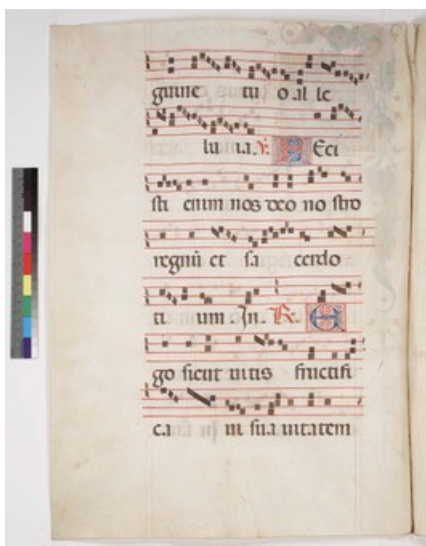 guine tu o al le
lu ia. ℣. F Eci
sti enim nos deo no stro
regnū et sa cerdo
ti um. In. ℟. E
go sicut uitis fructifi
ca ui sua uitatem